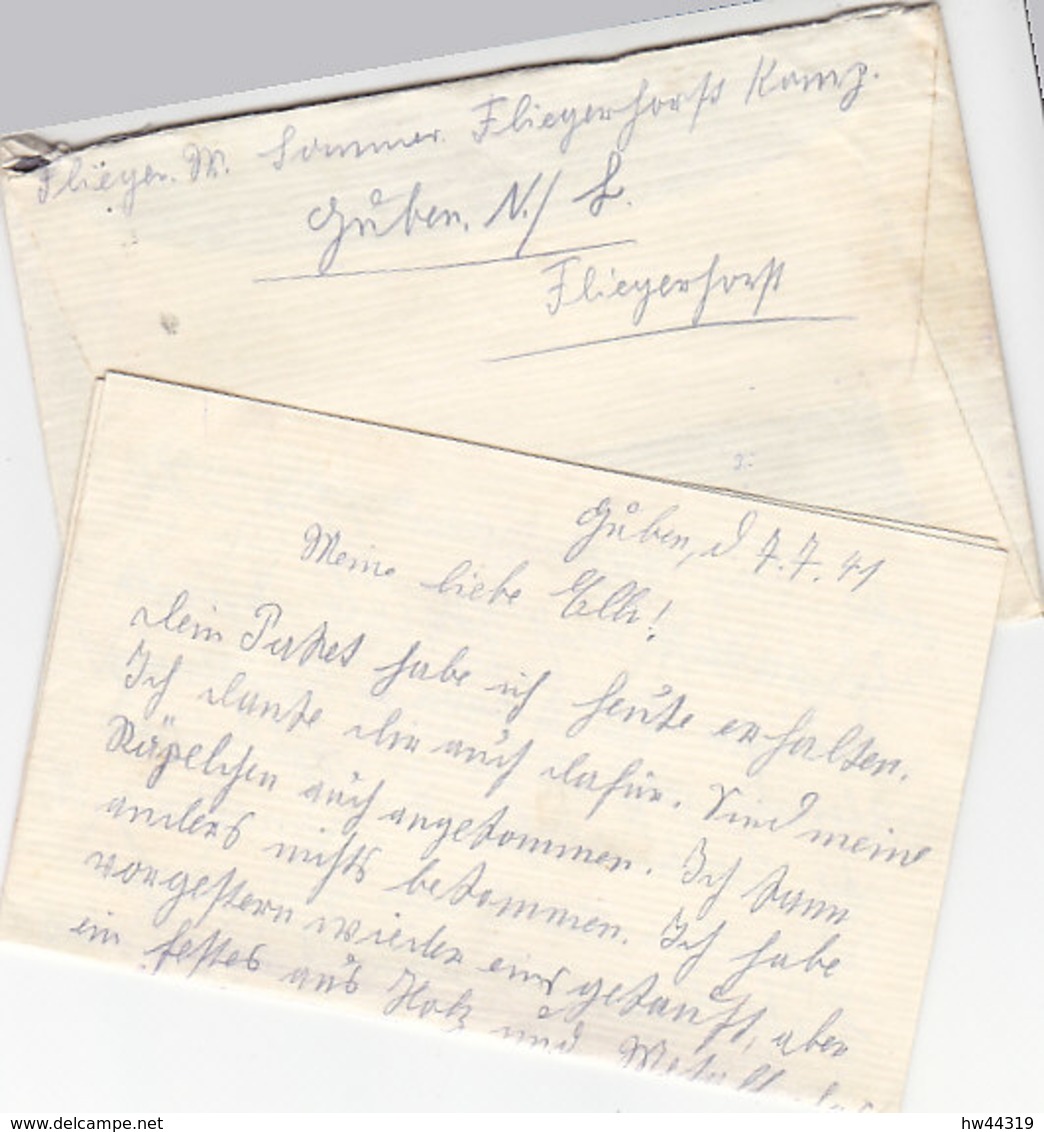 Flieger. W. Sommer. Fliegerhorst Komp.
Guben. N./L.
Fliegerhorst
Guben, d 7.7.41
Meine liebe Elli!
Dein Paket habe ich heute erhalten.
Ich danke dir auch dafür. Sind meine
auch angekommen. Ich kann
anders nichts bekommen. Ich habe
vorgestern wieder eins gekauft, aber
ein festes aus Holz und Metall
www.delcampe.net
hw44319